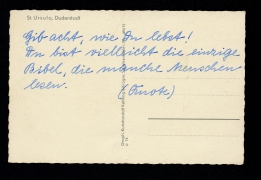 St. Ursula, Duderstadt
Gib acht, wie Du lebst!
Du bist vielleicht die einzige
Bibel, die manche Menschen
lesen. (Knote)